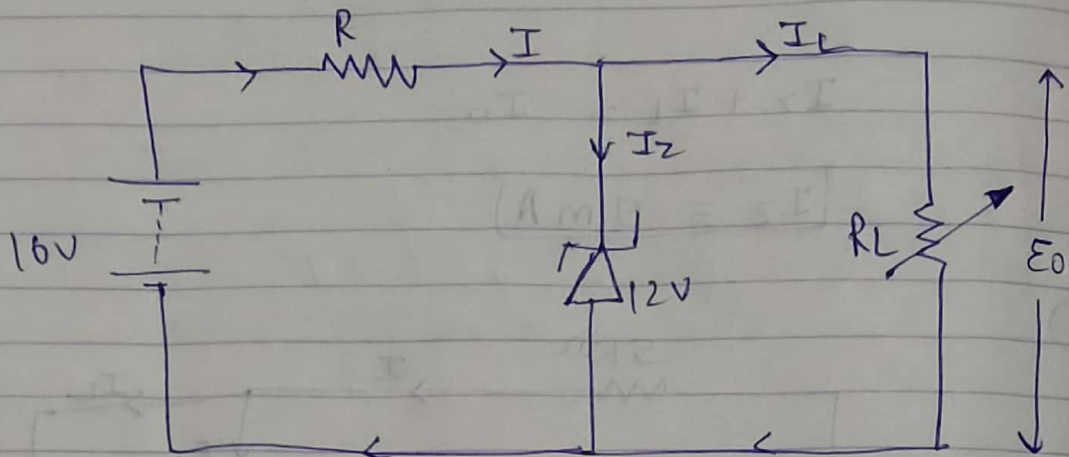 R
I
IL
Iz
16V
12V
RL
E0